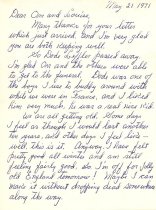 May 21 1971
Dear Con and Louise,
Many thanks for your letter
which just arrived and I'm very glad
you are both keeping well.
So Dode passed away.
I'm glad Con and the others were able
to get to the funeral, Dode was one of
the boys I use to buddy around with
while we were in France, and I liked
him very much, he was a real nice kid
We are all getting old. Some days
I feel as though I would last another
ten years and other days I feel kinda
well, this is it. Anyway I have felt
pretty good all winter and am still
feeling fairly good. So I'm off for jolly
old England tomorrow! Maybe I can
make it without dropping dead somewhere
along the way.